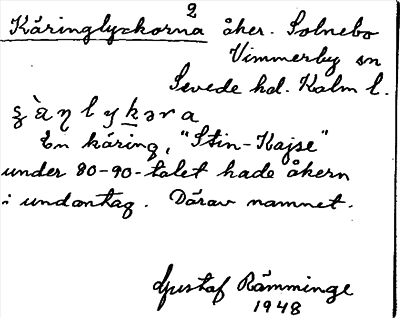 2
Käringlyckorna åker. Solnebo
Vimmerby sn
Sevede hd. Kalm l.
En käring, "Stin-Kajse"
under 80-90-talet hade åkern
i undantag. Därav namnet.
Gustaf Rämminge
1948